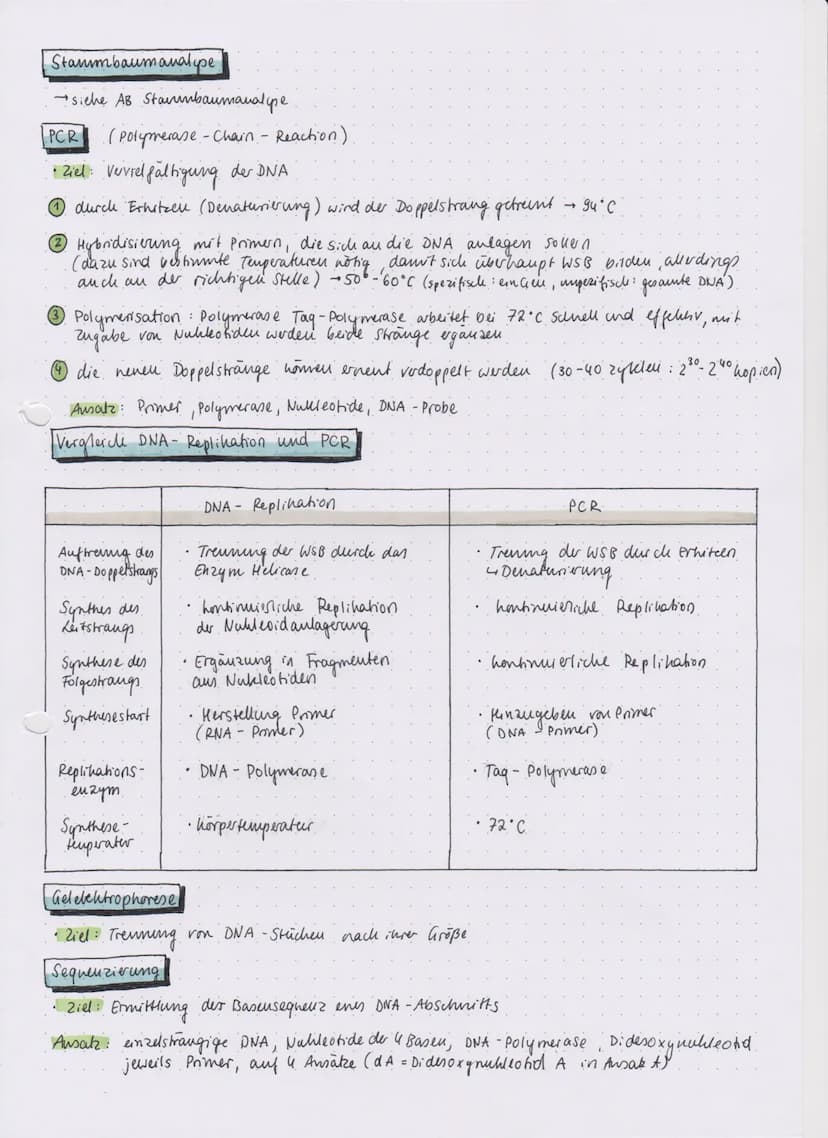 Stammbaumanalyse
→ siehe AB Stammbaumanalyse
PCR (Polymerase-Chain-Reaction)
• Ziel: Vervielfältigung der DNA
① durch Erhitzen (Denaturierung) wird der Doppelstrang getrennt → 94°C
② Hybridisierung mit Primern, die sich an die DNA anlagen sollen
(dazu sind bestimmte Temperaturen nötig, damit sich überhaupt WSB bilden, allerdings
auch an der richtigen Stelle) → 50°-60°C (spezifisch: einzeln, unspezifisch: gesamte DNA)
③ Polymerisation: Polymerase Taq-Polymerase arbeitet bei 72°C schnell und effektiv, mit
Zugabe von Nukleotiden werden beide Stränge ergänzen
④ die neuen Doppelstränge können erneut verdoppelt werden (30-40 Zyklen: 2³⁰-2⁴⁰ Kopien)
Ansatz: Primer, Polymerase, Nukleotide, DNA-Probe
Vergleich DNA-Replikation und PCR
DNA-Replikation PCR
Auftrennung des • Trennung der WSB durch das • Trennung der WSB durch Erhitzen
DNA-Doppelstrangs Enzym Helicase ↳ Denaturierung
Synthes des • kontinuierliche Replikation • kontinuierliche Replikation
Leitstrangs der Nukleoidanlagerung
Synthese des • Ergänzung in Fragmenten • kontinuierliche Replikation
Folgestrangs aus Nukleotiden
Synthesestart • Herstellung Primer • Hinzugeben von Primer
(RNA-Primer) (DNA-Primer)
Replikations- • DNA-Polymerase • Taq-Polymerase
enzym
Synthese- • Körpertemperatur • 72°C
temperatur
Gelelektrophorese
• Ziel: Trennung von DNA-Stücken nach ihrer Größe
Sequenzierung
• Ziel: Ermittlung der Basensequenz eines DNA-Abschnitts
Ansatz: einzelsträngige DNA, Nukleotide der 4 Basen, DNA-Polymerase, Didesoxynukleotid
jeweils Primer, auf 4 Ansätze (dA = Didesoxynukleotid A in Ansatz A)